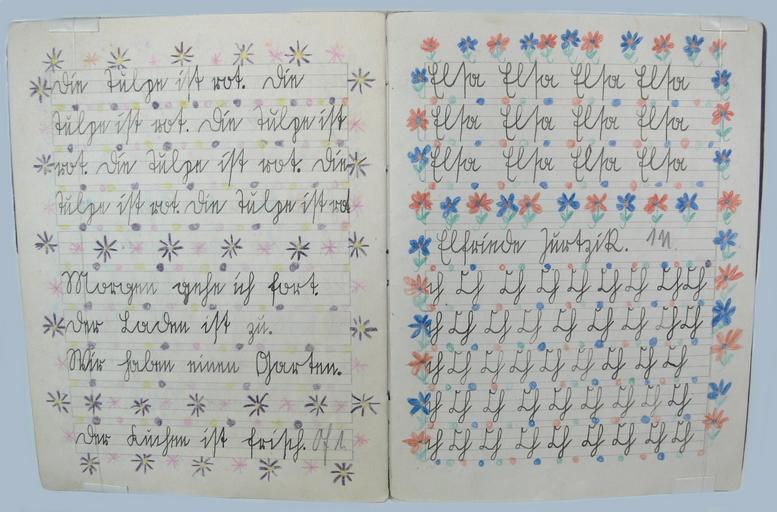 Die Tulpe ist rot. Die
Tulpe ist rot. Die Tulpe ist
rot. Die Tulpe ist rot. Die
Tulpe ist rot. Die Tulpe ist ro
Morgen gehe ich fort.
Der Laden ist zu.
Wir haben einen Garten.
Der Kuchen ist frisch.
Elsa Elsa Elsa Elsa
Elsa Elsa Elsa Elsa
Elsa Elsa Elsa Elsa
Elfriede
ch ch ch ch ch ch ch ch ch
ch ch ch ch ch ch ch ch ch
ch ch ch ch ch ch ch ch
ch ch ch ch ch ch ch ch
ch ch ch ch ch ch ch ch